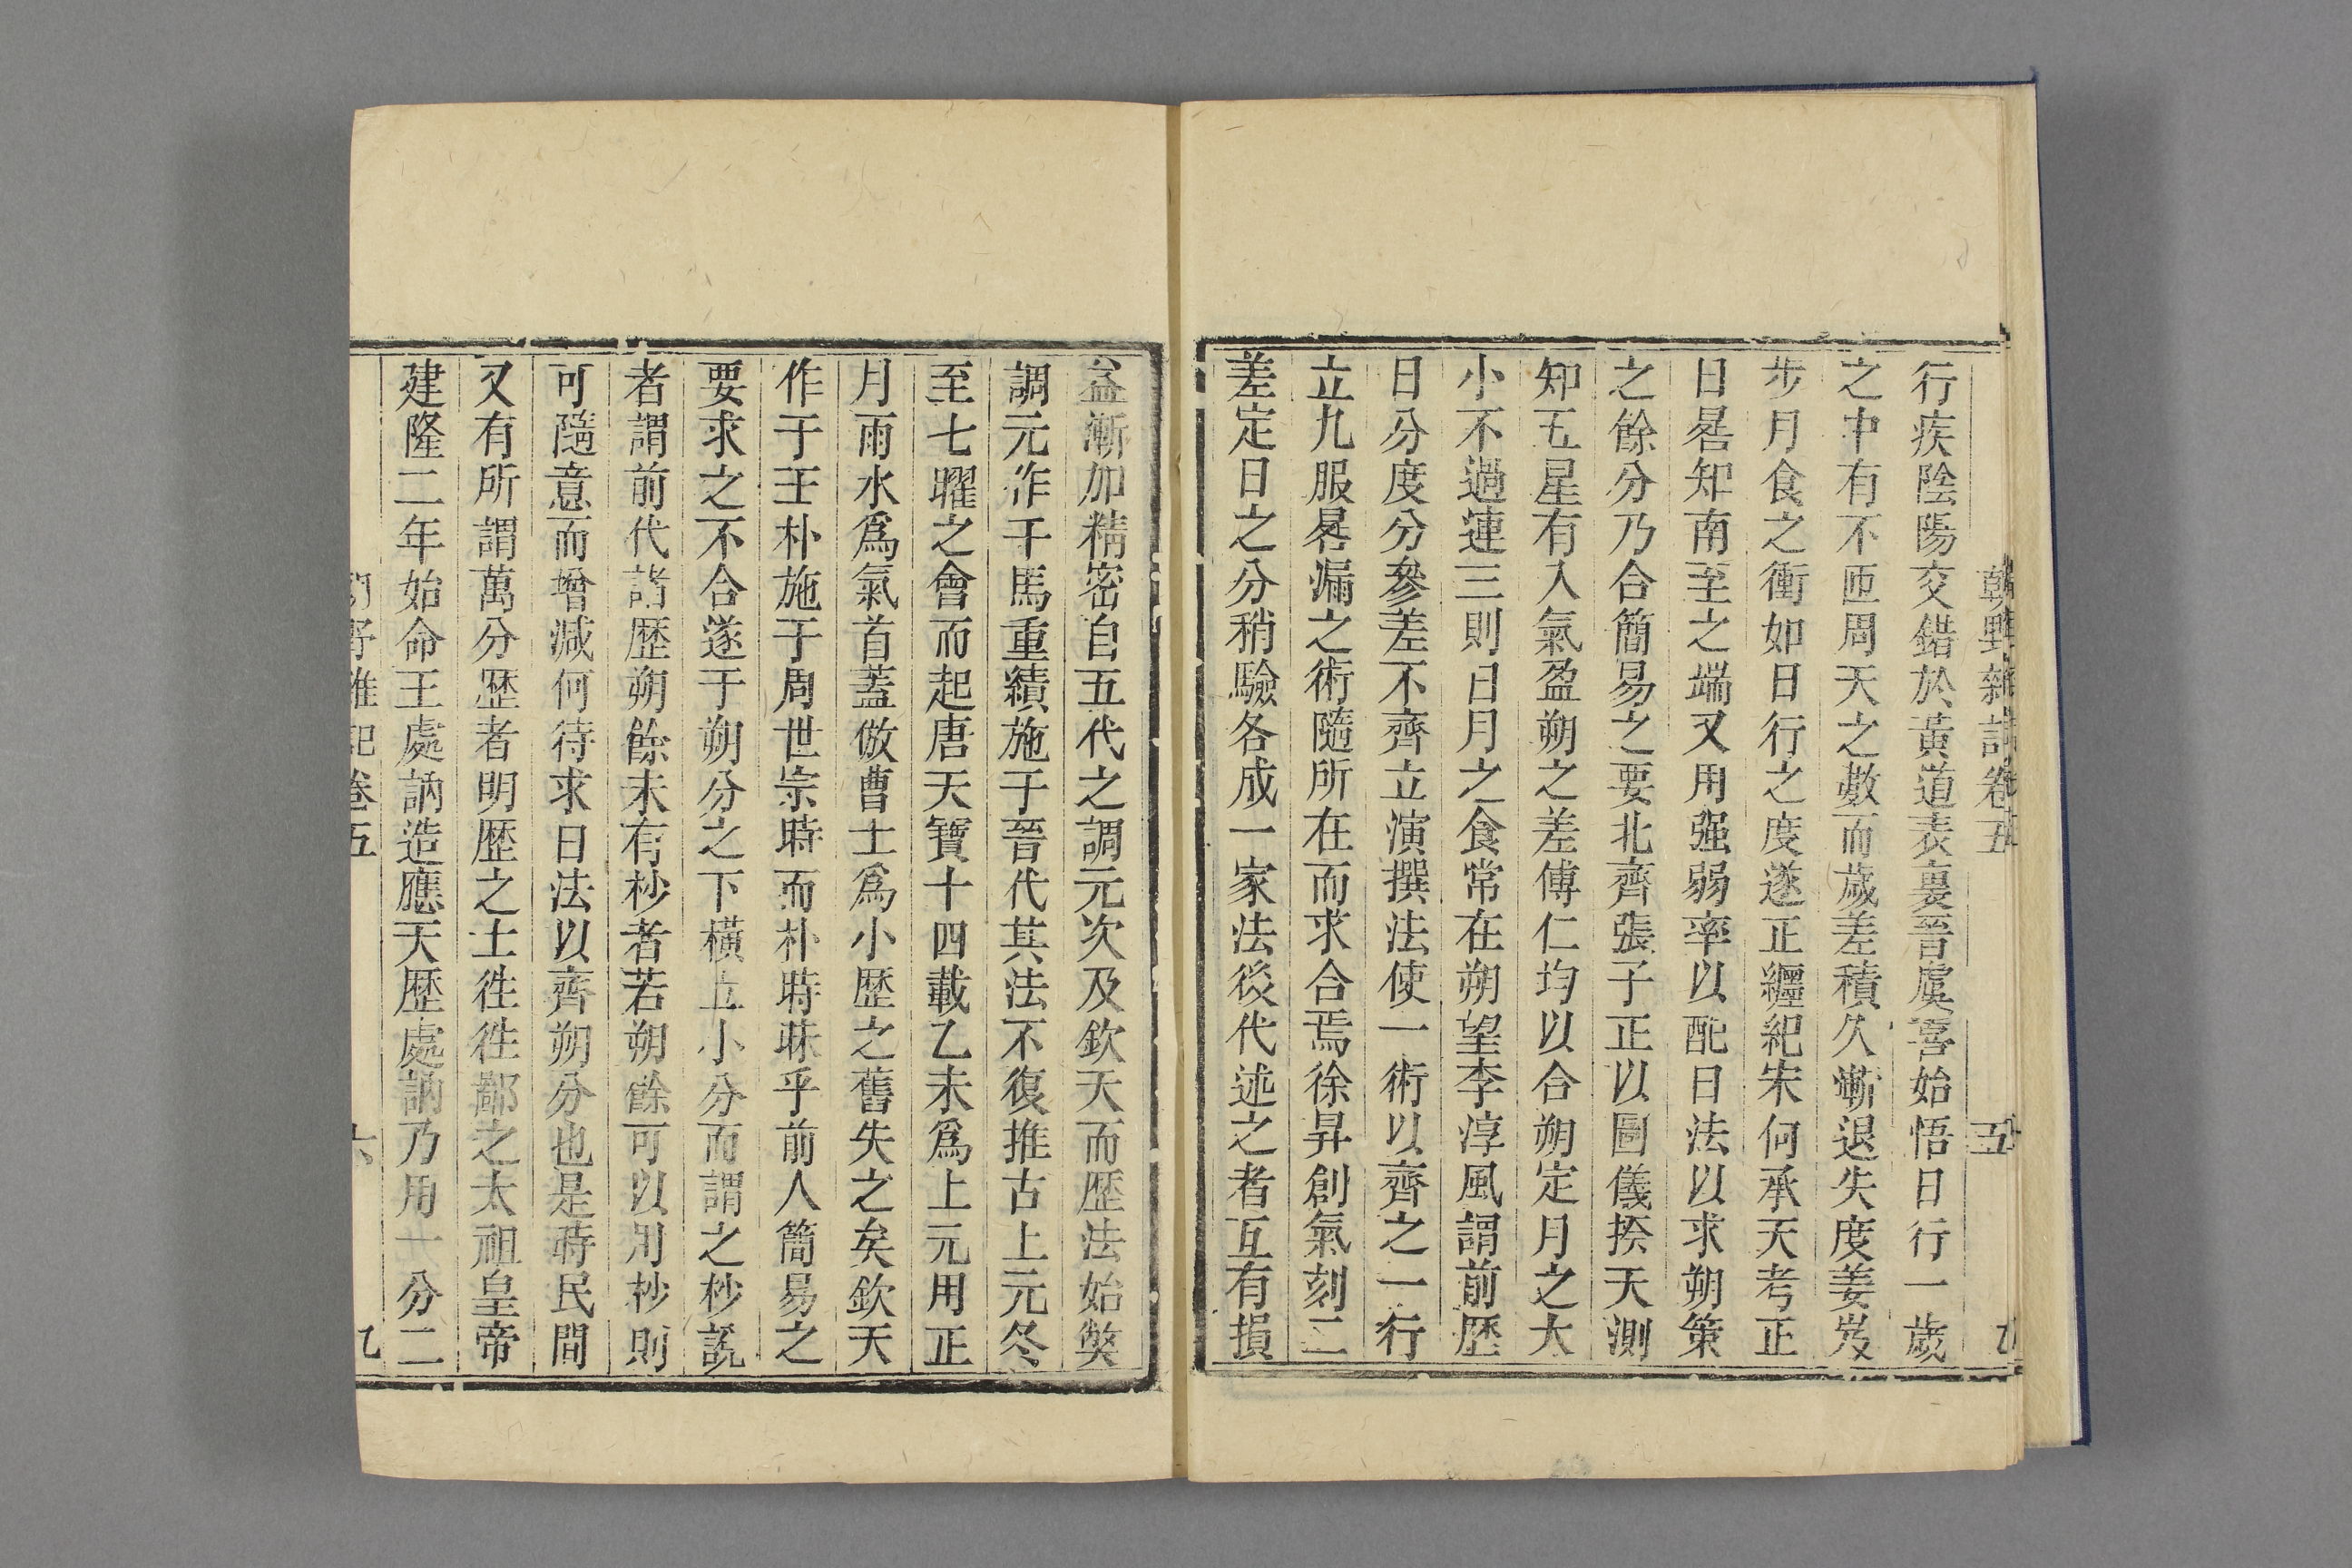 朝野雜記卷五 五
行疾陰陽交錯於黃道表裏晉虞喜始悟日行一歲
之中有不匝周天之數而歲差積久漸退失度姜岌
步月食之衝如日行之度遂正纒紀宋何承天考正
日晷知南至之端又用强弱率以配日法以求朔策
之餘分乃合簡易之要北齊張子正以圖儀揆天測
知五星有入氣盈朔之差傅仁均以合朔定月之大
小不過連三則日月之食常在朔望李淳風謂前歷
日分度分參差不齊立演撰法使一術以齊之一行
立九服晷漏之術隨所在而求合焉徐昇創氣刻二
差定日之分稍驗各成一家法後代述之者互有損
益漸加精密自五代之調元次及欽天而歷法始獘
調元作于馬重績施于晉代其法不復推古上元冬
至七曜之會而起唐天寶十四載乙未爲上元用正
月雨水爲氣首蓋倣曹士爲小歷之舊失之矣欽天
作于王朴施于周世宗時而朴時昧乎前人簡易之
要求之不合遂于朔分之下橫立小分而謂之杪説
者謂前代諸歷朔餘未有杪者若朔餘可以用杪則
可隨意而增減何待求日法以齊朔分也是時民間
又有所謂萬分歷者明歷之士徃徃鄙之太祖皇帝
建隆二年始命王處訥造應天歷處訥乃用一分二
野雜記卷五 六